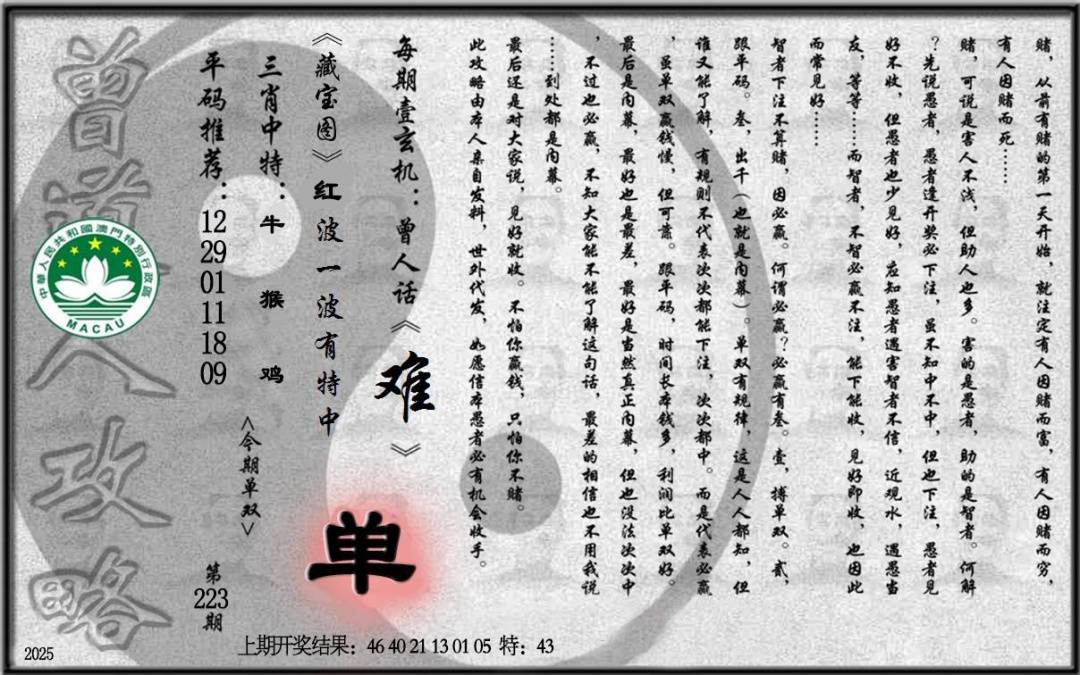 赌，从前有赌的第一天开始，就注定有人因赌而富，有人因赌而穷，
有人因赌而死……
赌，可说是害人不浅，但助人也多。害的是愚者，助的是智者。何解
？先说愚者，愚者逢开奖必下注，虽不知中不中，但也下注，愚者见
好不收，但愚者也少见好，应知愚者遇害智者不信，近观水，遇愚当
友，等等……而智者，不智必赢不注，能下能收，见好即收，也因此
而常见好……
智者下注不算赌，因必赢。何谓必赢？必赢有叁。壹，搏单双。贰，
跟单码。叁，出千（也就是内幕）。单双有规律，这是人人都知，但
谁又能了解，有规则不代表次次都能下注，次次都中。而是代表必赢
，虽单双赢钱慢，但可靠。跟单码，时间长本钱多，利润比单双好。
最后是内幕，最好也是最差，最好是当然真正内幕，但也没法次次中
，不过也必赢，不知大家能不能了解这句话，最差的相信也不用我说
……到处都是内幕。
最后还是对大家说，见好就收。不怕你赢钱，只怕你不赌。
此攻略由本人亲自发料，世外代发，如愿信本愚者必有机会收手。
每期壹玄机：曾人话《难》
《藏宝图》红波一波有特中
三肖中特：牛 猴 鸡
平码推荐：12 29 01 11 18 09
<今期单双>
单
第223期
曾道人攻略
中華人民共和國澳門特別行政區
MACAU
上期开奖结果：46 40 21 13 01 05 特：43
2025